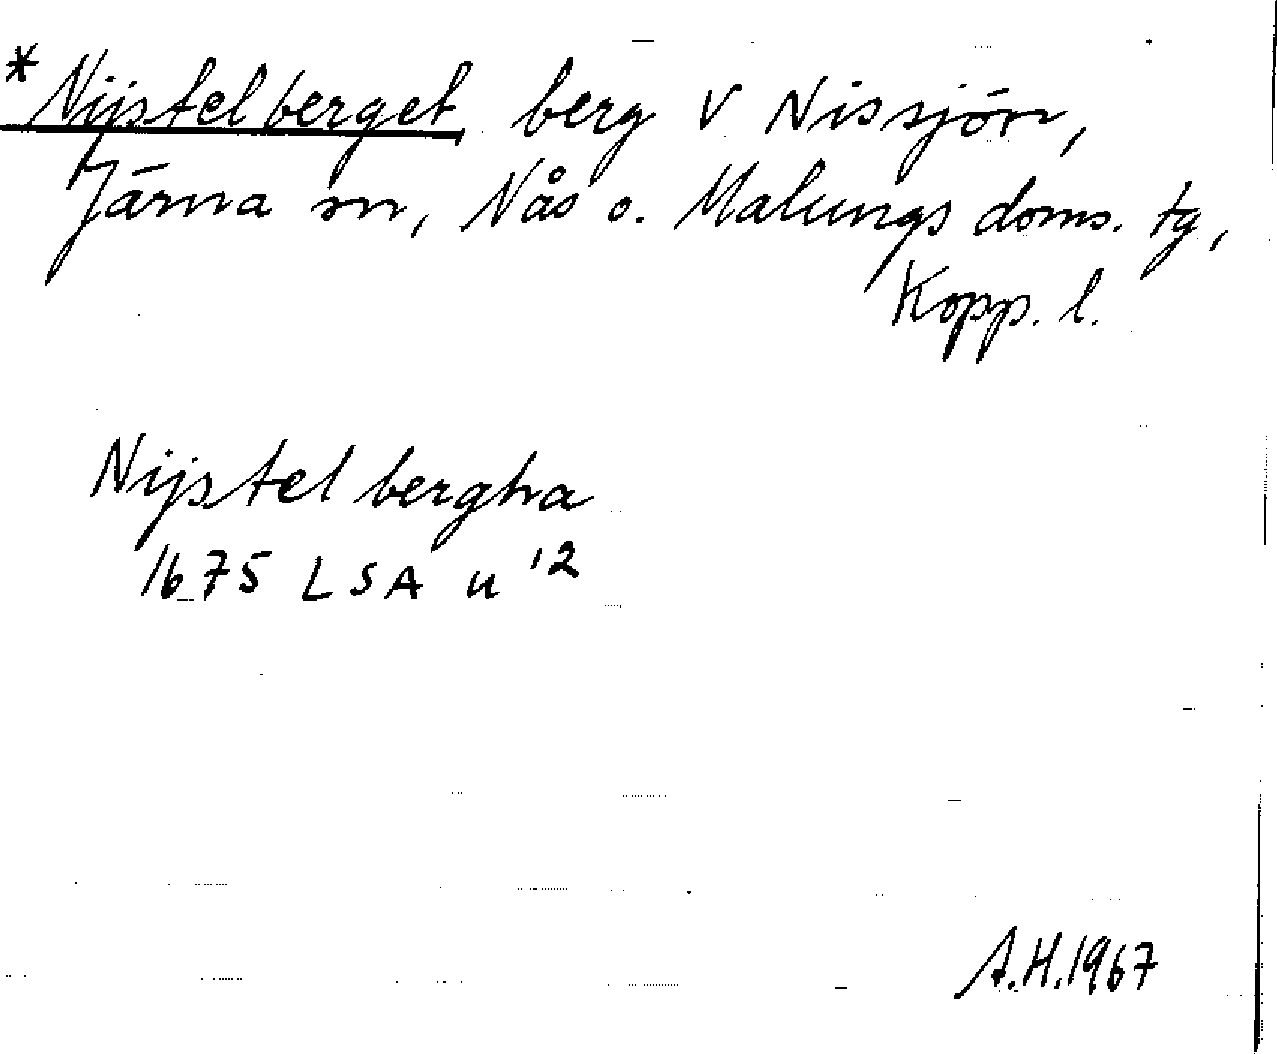 *Nijstelberget berg V Nissjön,
Järna sn, Nås o. Malungs doms. tg,
Kopp. l.
Nijstelbergha
1675 LSA u '2
A.H. 1967